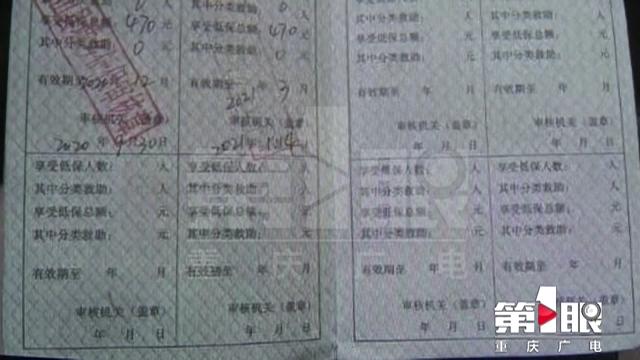 享受低保总额：470元
其中分类救助：0元
有效期至2020年12月
审核机关（盖章）
2020年9月30日
享受低保总额：470元
其中分类救助：0元
有效期至
2021年3月
审核机关（盖章）
2021年1月4日
其中分类救助：人
享受低保总额：元
其中分类救助：元
有效期至 年 月
审核机关（盖章）
年 月 日
其中分类救助：人
享受低保总额：元
其中分类救助：元
有效期至 年 月
审核机关（盖章）
年 月 日
享受低保人数：人
其中分类救助：人
享受低保总额：元
其中分类救助：元
有效期至 年 月
审核机关（盖章）
年 月 日
享受低保人数：人
其中分类救助：人
享受低保总额：元
其中分类救助：元
有效期至 年 月
审核机关（盖章）
年 月 日
享受低保人数：人
其中分类救助：人
享受低保总额：元
其中分类救助：元
有效期至 年 月
审核机关（盖章）
年 月 日
享受低保人数：人
其中分类救助：人
享受低保总额：元
其中分类救助：元
有效期至 年 月
审核机关（盖章）
年 月 日
重庆广电
第1眼
重庆广电